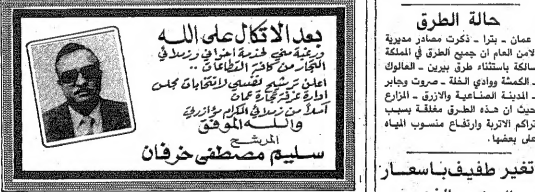 حالة الطرق
عمان ـ بترا ـ ذكرت مصادر مديرية
الامن العام ان جميع الطرق في المملكة
سالكة باستثناء طرق بيرين ـ العالوك
ـ الكمشة ووادي الخلة ـ صروت وجابر
ـ المدينة الصناعية والازرق ـ المزارع
حيث ان هذه الطرق مغلقة بسبب
تراكم الاتربة وارتفاع منسوب المياه
على بعضها .
تغير طفيف باسعار
بعد الاتكال على الله
ورغبة مني لخدمة أخواني وزملائي
التجار من كافة القطاعات ..
اعلن ترشيح نفسي لانتخابات مجلس
ادارة غرفة تجارة عمان
آملاً من زملائي الكرام مؤازرتي
والله الموفق
المرشح
سليم مصطفى خرفان